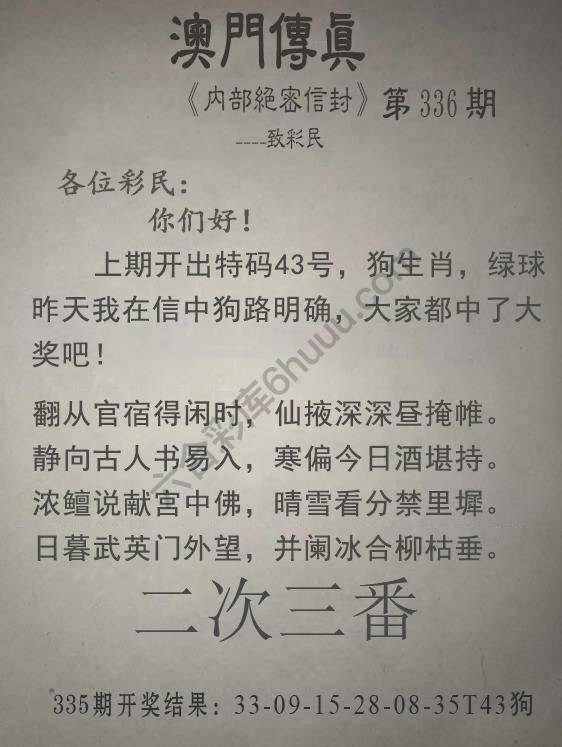 澳門傳眞
《内部絕密信封》第336期
----致彩民
各位彩民：
你们好！
上期开出特码43号，狗生肖，绿球
昨天我在信中狗路明确，大家都中了大
奖吧！
翻从官宿得闲时，仙掖深深昼掩帷。
静向古人书易入，寒偏今日酒堪持。
浓鳣说献宫中佛，晴雪看分禁里墀。
日暮武英门外望，并阑冰合柳枯垂。
二次三番
335期开奖结果：33-09-15-28-08-35T43狗
六合彩库6huuu.com